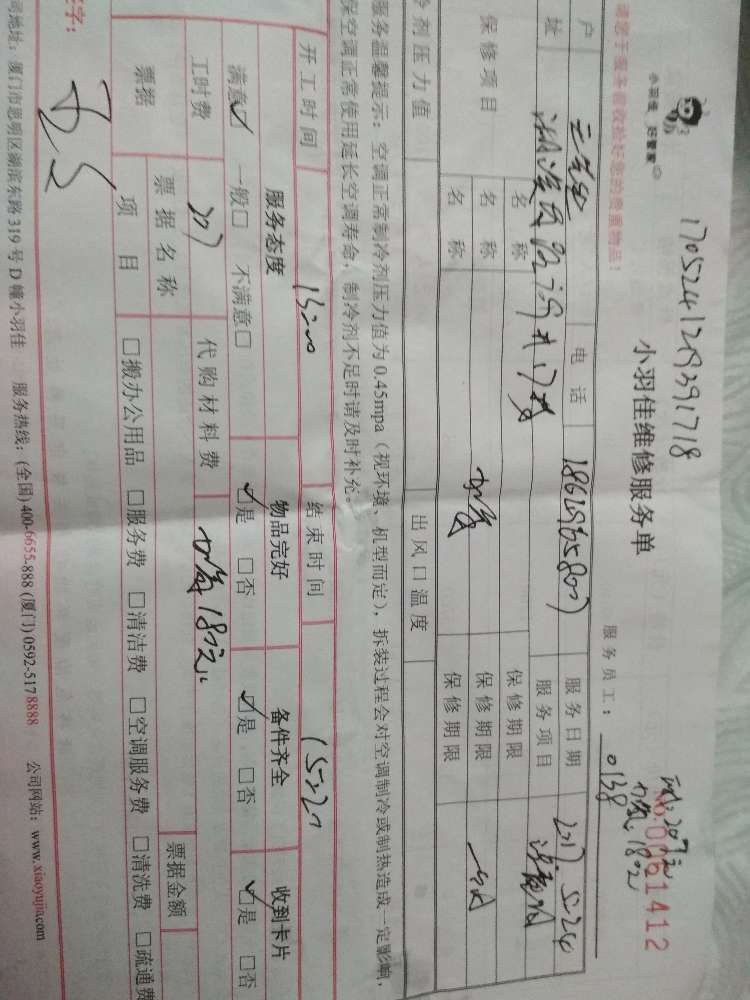 1705241219391718
小羽佳 好管家
小羽佳维修服务单
No.0061412
请您于服务前收拾好您的贵重物品！
服务员工：
0138
户
电话
18619658007
服务日期
2017.5.24
址
服务项目
保修项目
名称
保修期限
名称
加氟
保修期限
名称
保修期限
冷剂压力值
出风口温度
服务温馨提示：空调正常制冷剂压力值为0.45mpa（视环境、机型而定），拆装过程会对空调制冷或制热造成一定影响，
保空调正常使用延长空调寿命，制冷剂不足时请及时补充。
开工时间
15:00
结束时间
15:20
服务态度
物品完好
备件齐全
收到卡片
满意☑ 一般□ 不满意□
☑是 □否
☑是 □否
☑是 □否
工时费
207
代购材料费
加氟180元
票据
票据名称
票据金额
项目
□搬办公用品 □服务费 □清洁费 □空调服务费 □清洗费 □疏通费
签字：
司地址：厦门市思明区湖滨东路319号D幢小羽佳 服务热线：(全国)400-6655-888 (厦门)0592-5178888 公司网站：www.xiaoyujia.com